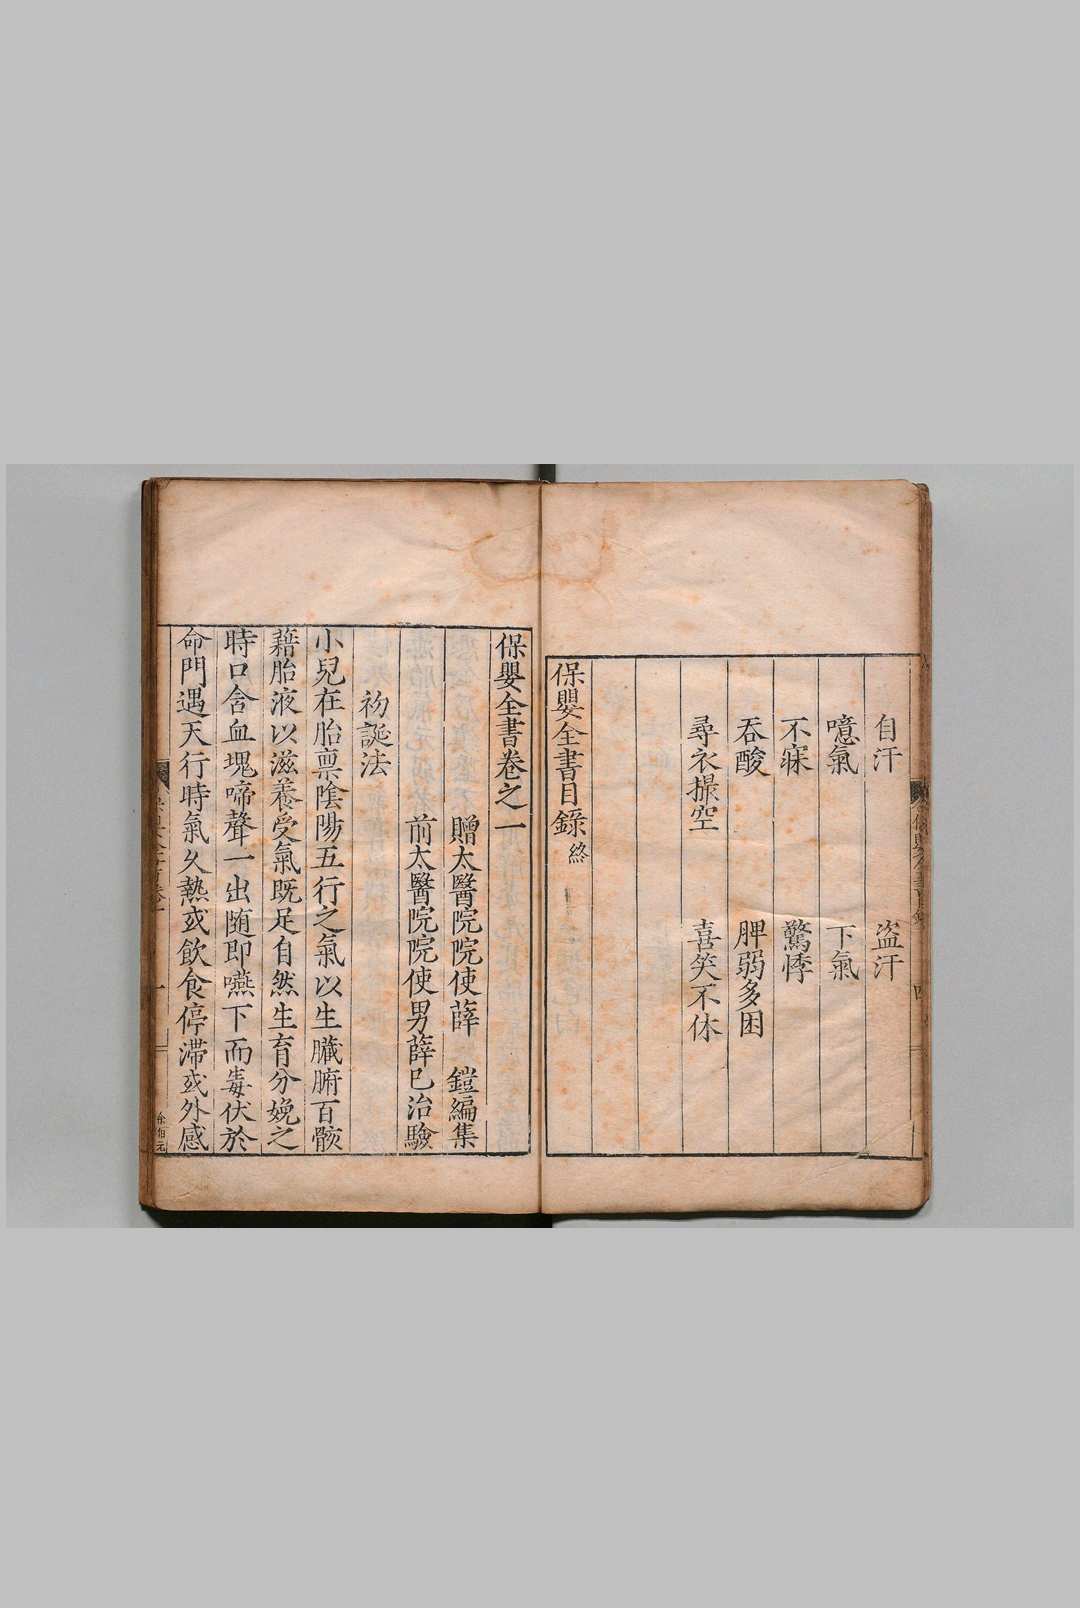 自汗　盗汗
噫氣　下氣
不寐　驚悸
吞酸　脾弱多困
尋衣撮空　喜笑不休
保嬰全書目錄終
保嬰全書卷之一
贈太醫院院使薛　鎧編集
前太醫院院使男薛己治驗
初誕法
小兒在胎禀陰陽五行之氣以生臟腑百骸
藉胎液以滋養受氣既足自然生育分娩之
時口含血塊啼聲一出隨即嚥下而毒伏於
命門遇天行時氣久熱或飲食停滯或外感